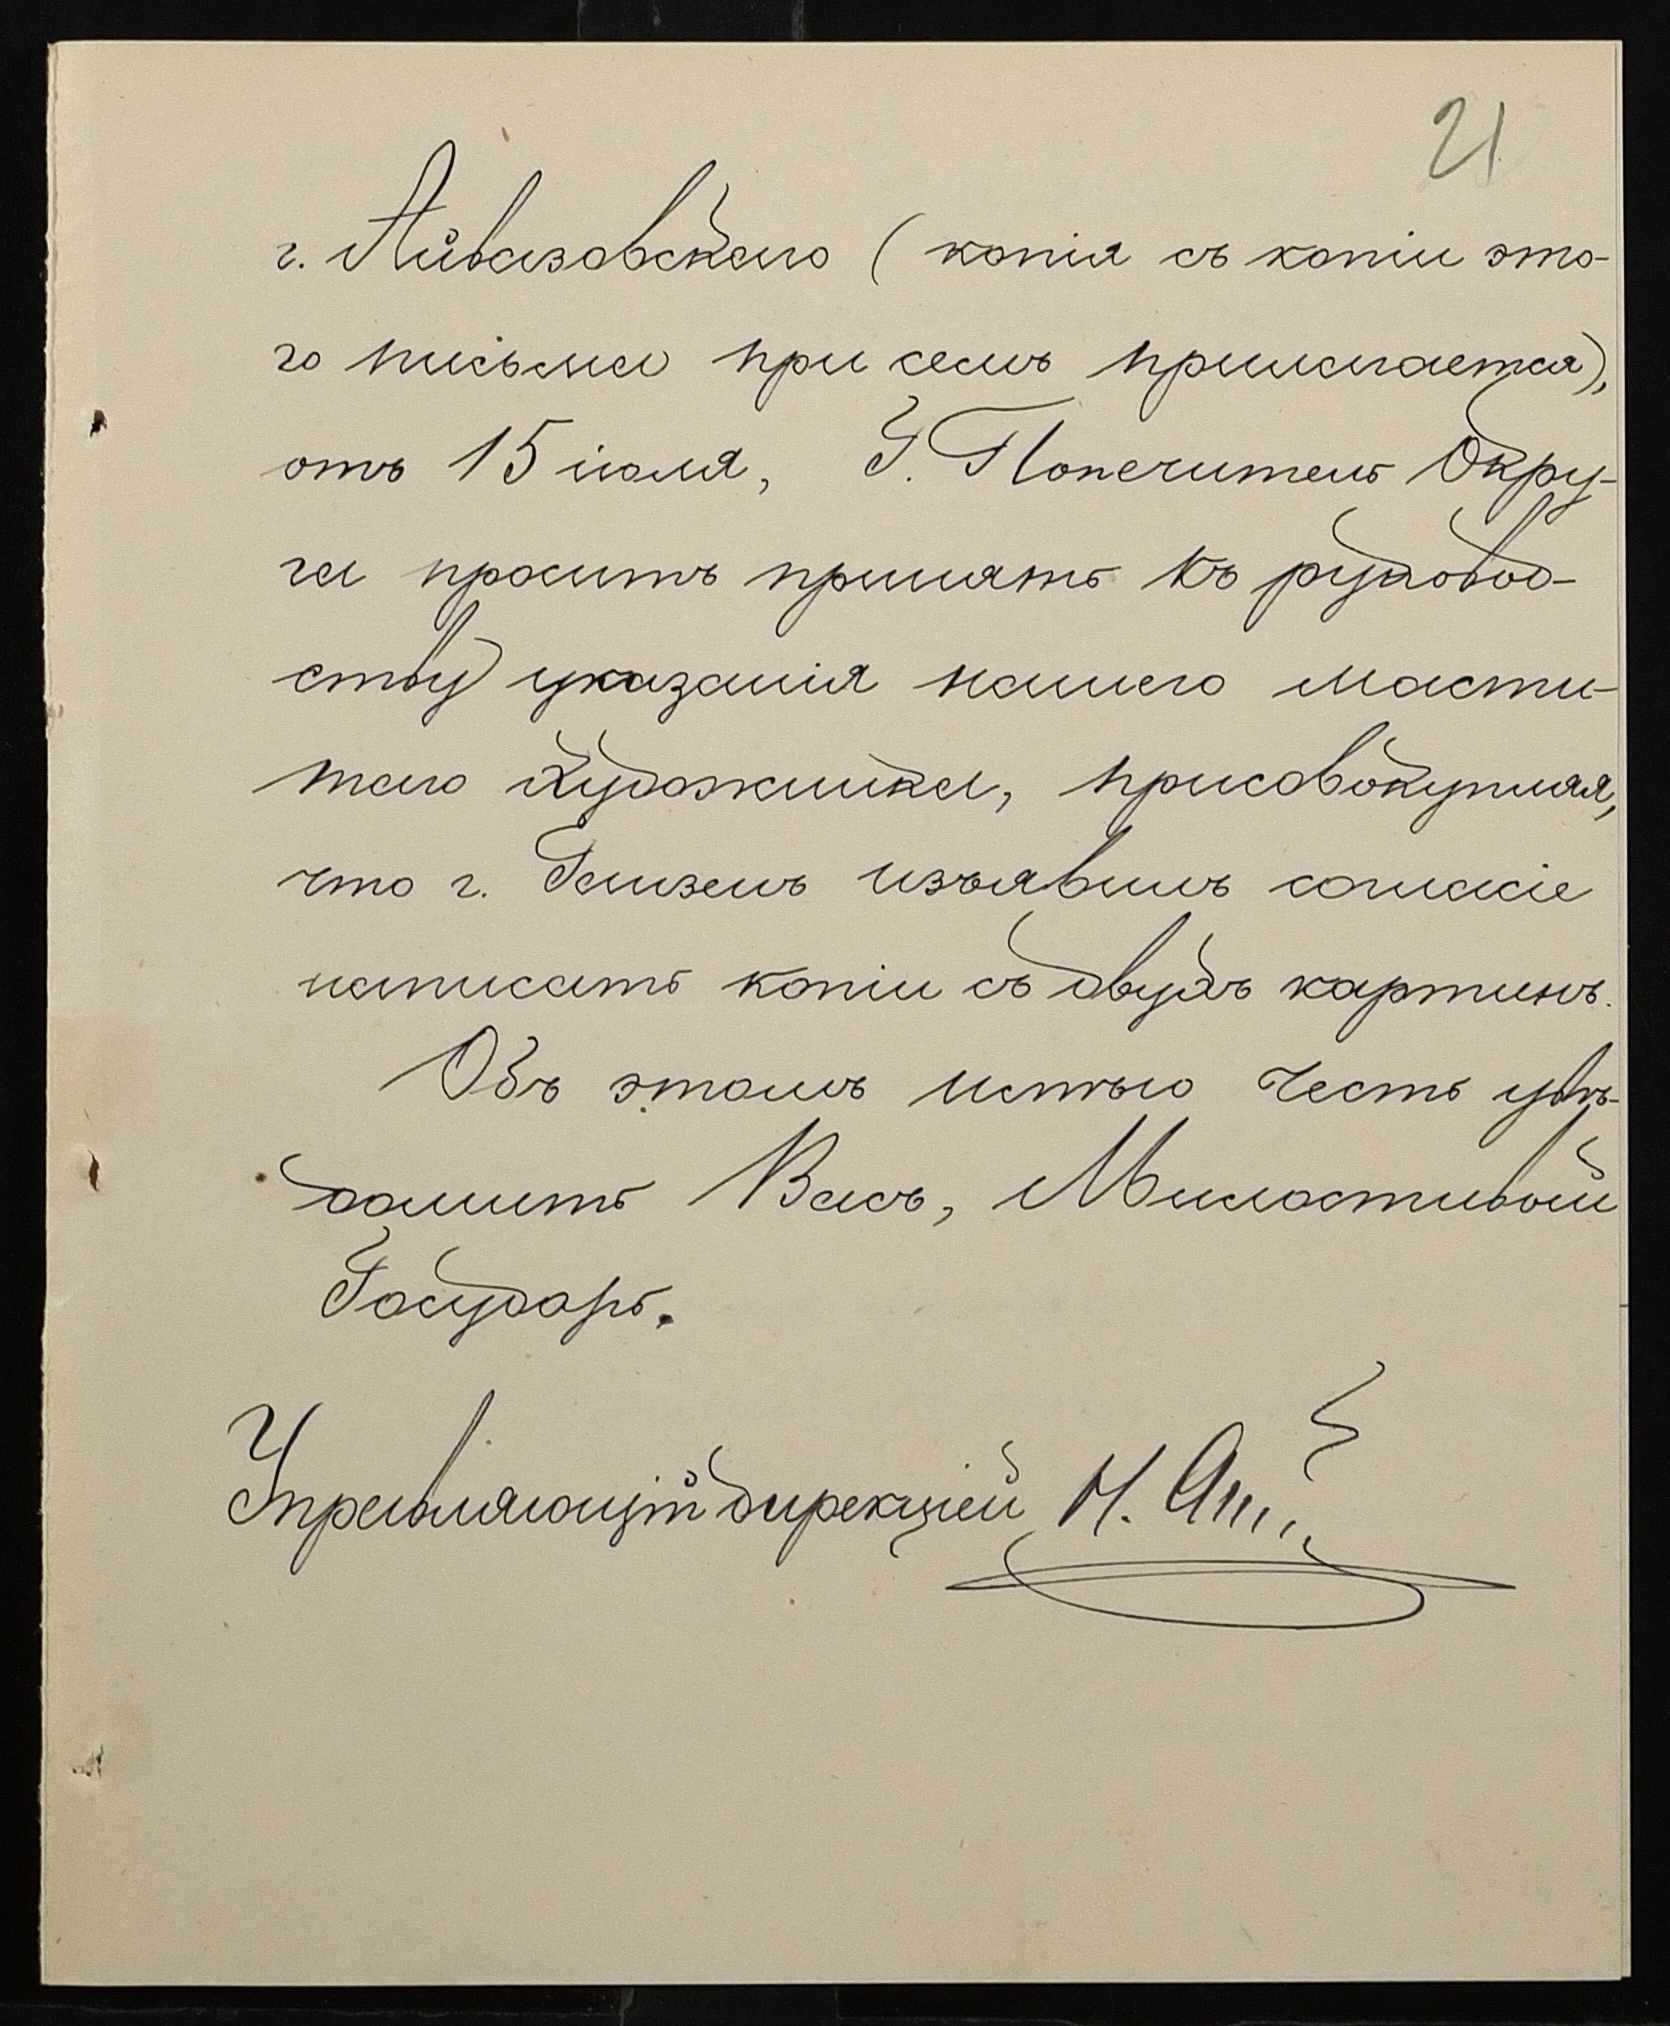 21
г. Айвазовскаго (копія съ копіи это-
го письма при семъ прилагается),
отъ 15 іюля, Г. Попечитель Окру-
га проситъ принять къ руковод-
ству указанія нашего масти-
таго художника, присовокупляя,
что г. Ганзенъ изъявилъ согласіе
написать копіи съ двухъ картинъ.
Объ этомъ имѣю честь увѣ-
домить Васъ, Милостивый
Государь.
Управляющій дирекціей Н.